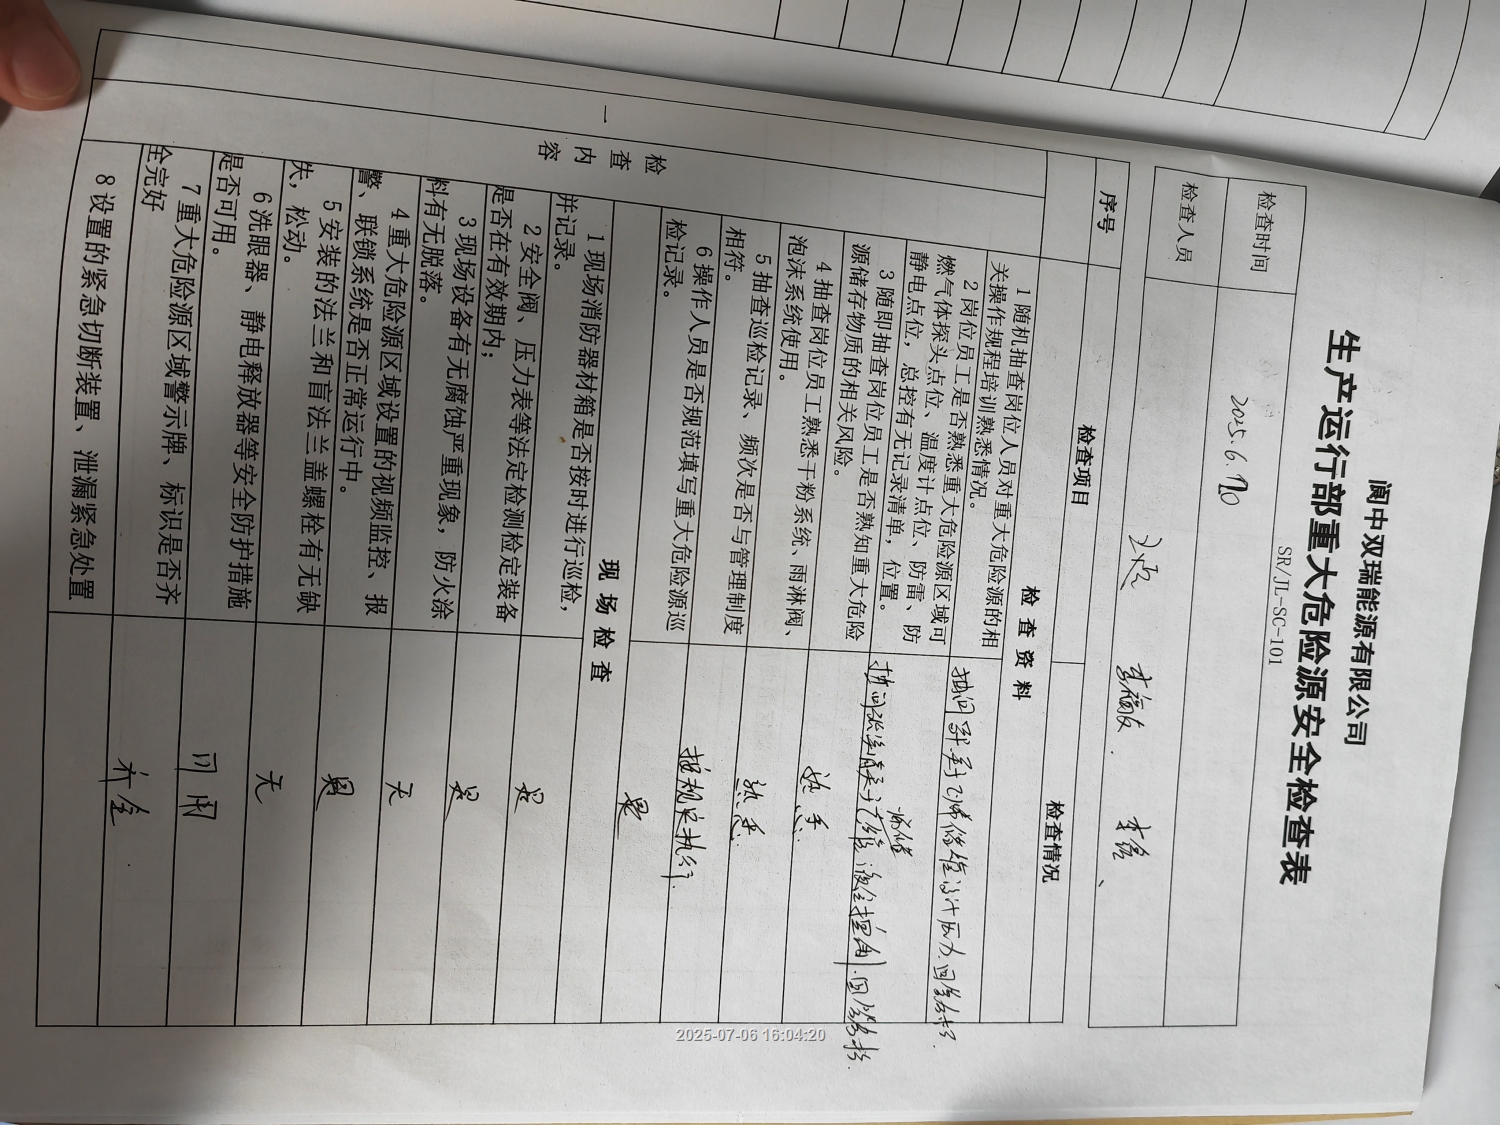 阆中双瑞能源有限公司
生产运行部重大危险源安全检查表
SR/JL-SC-101
检查时间
2025.6.20
检查人员
李福友.
序号
检查项目
检查情况
一
检查内容
检查资料
1 随机抽查岗位人员对重大危险源的相
关操作规程培训熟悉情况。
2 岗位员工是否熟悉重大危险源区域可
燃气体探头点位、温度计点位、防雷、防
静电点位，总控有无记录清单，位置。
3 随即抽查岗位员工是否熟知重大危险
源储存物质的相关风险。
4 抽查岗位员工熟悉干粉系统、雨淋阀、
泡沫系统使用。
熟悉.
5 抽查巡检记录、频次是否与管理制度
相符。
熟悉.
6 操作人员是否规范填写重大危险源巡
检记录。
按规定执行.
是
现场检查
1 现场消防器材箱是否按时进行巡检，
并记录。
2 安全阀、压力表等法定检测检定装备
是否在有效期内；
是
3 现场设备有无腐蚀严重现象，防火涂
料有无脱落。
是
4 重大危险源区域设置的视频监控、报
警、联锁系统是否正常运行中。
无
5 安装的法兰和盲法兰盖螺栓有无缺
失，松动。
是
6 洗眼器、静电释放器等安全防护措施
是否可用。
无
7 重大危险源区域警示牌、标识是否齐
全完好
可用
8 设置的紧急切断装置、泄漏紧急处置
齐全.
2025-07-06 16:04:20